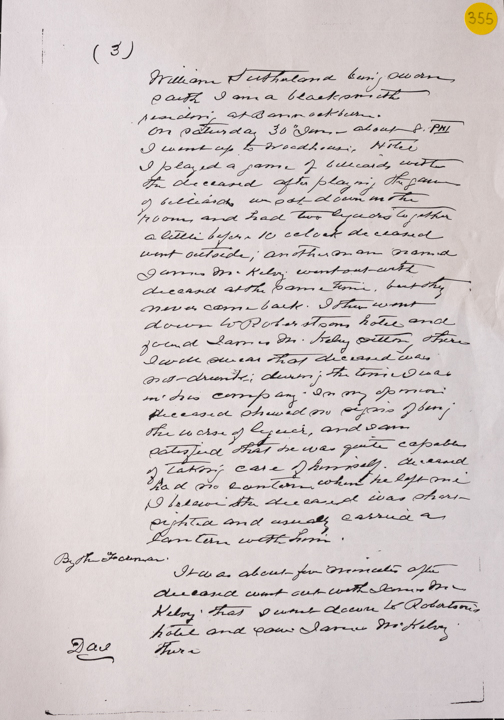 355
(3)
William Sutherland being sworn
saith I am a blacksmith
residing at Bannockburn.
On Saturday 30th about 8. PM
I went up to Woodhouse's Hotel
I played a game of billiards with
the deceased after playing the game
of billiards we sat down in the
room and had two liquors together
a little before 10 oclock deceased
went outside, another man named
James McKelvy went out with
deceased at the same time, but they
never came back. I then went
down to Robertsons hotel and
found James McKelvy sitting there
I would swear that deceased was
not drunk during the time I was
in his company. In my opinion
deceased showed no signs of being
the worse of liquor, and I am
satisfied that he was quite capable
of taking care of himself. deceased
had no lantern when he left me
I believe the deceased was short
sighted and usually carried a
lantern with him.
By the Foreman.
It was about five minutes after
deceased went out with James Mc
Kelvy that I went down to Robertsons
hotel and saw James McKelvy
there